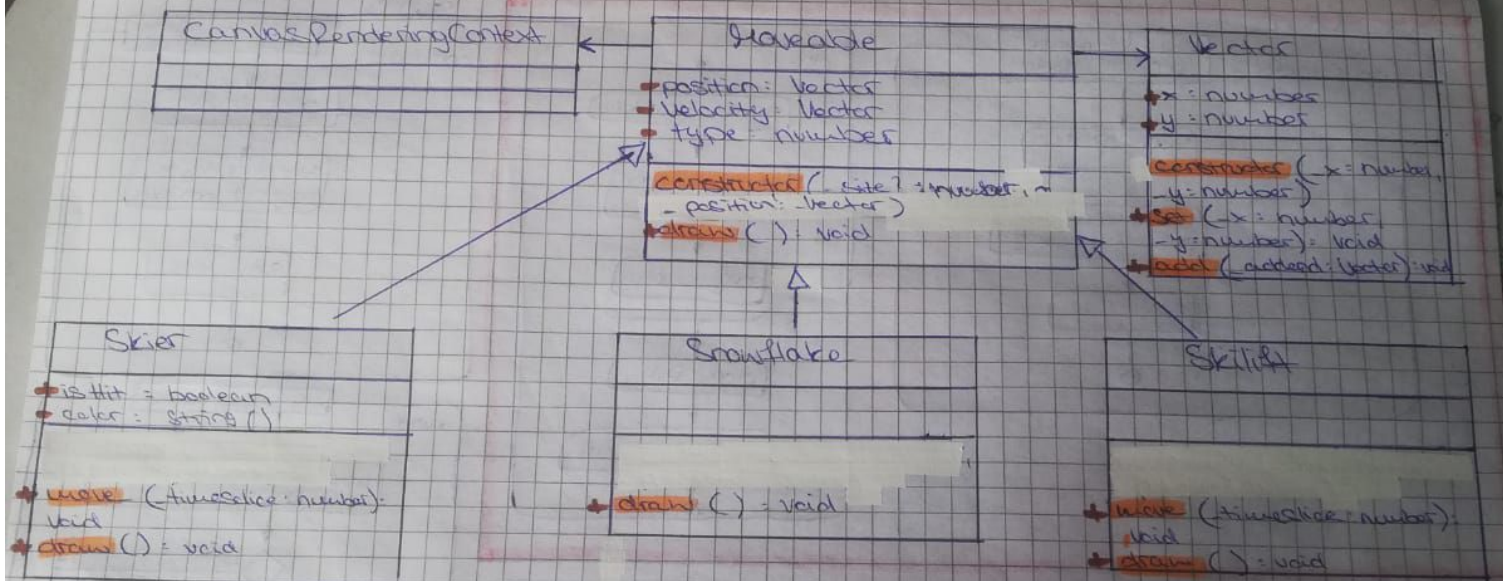 CanvasRenderingContext
Moveable
+position: Vector
+velocity: Vector
+ type = number
constructor (_size? : number, ~
- position: -Vector)
+draw ( ) : void
Vector
+x : number
+y : number
constructor (_x = number,
-y = number)
+set (-x : number
-y : number): void
+add (_addend: Vector): void
Skier
+isHit = boolean
+ color : string ()
+ move (_timeslice : number):
void
+ draw () = void
Snowflake
+ draw () : void
Skilift
+ move (_timeslice : number):
void
+ draw () : void